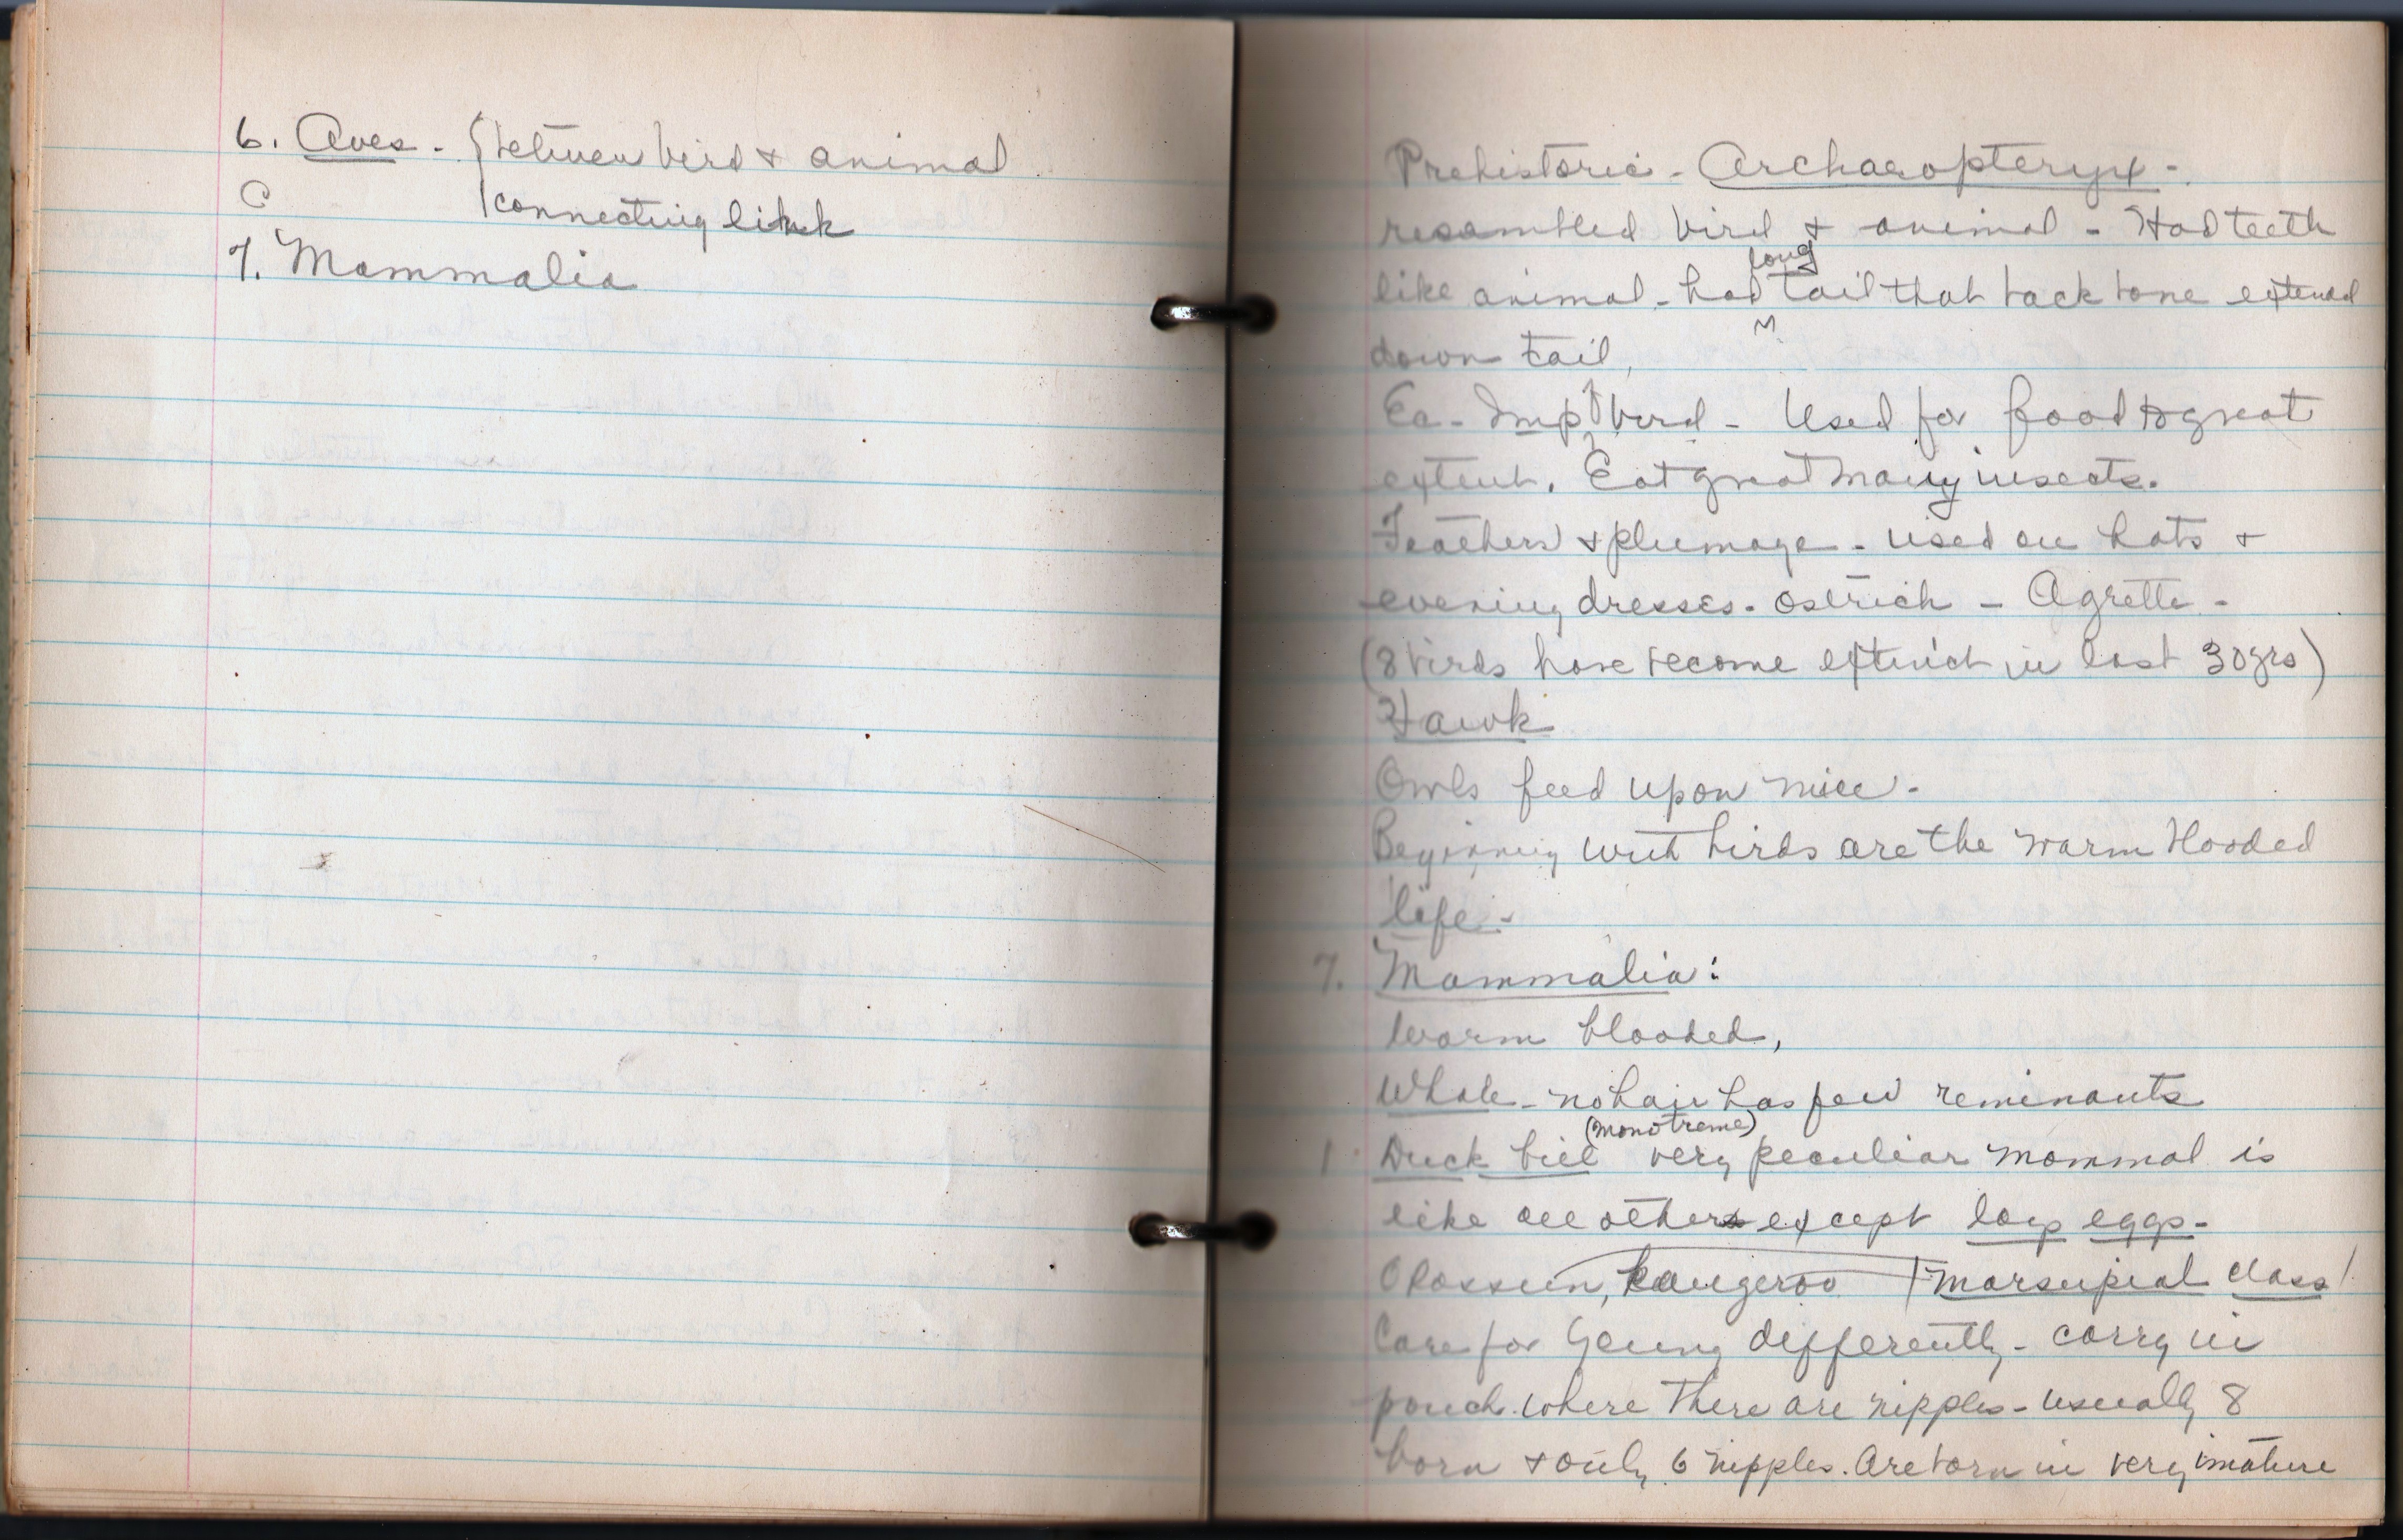 6. Aves - between bird & animal
connecting link
7. Mammalia
Prehistoric - Archaeopteryx -
resambled bird & animal - Had teeth
like animal - had long tail that back bone extend
down tail,
Ec - Imp bird - Used for food to great
extent. Eat great many insects.
Feathers & plumage - used on hats &
evening dresses. Ostrich - Agrette -
(8 birds have become extinct in last 30 yrs)
Hawk
Owls feed upon mice -
Beginning with birds are the warm blooded
life -
7. Mammalia:
Warm blooded,
Whale - no hair has few reminants
1. Duck bill (monotreme) very peculiar mammal is
like all others except lays eggs -
Oppossum, kangeroo marsupial class
Care for young differently - carry in
pouch where there are nipples - usually 8
born & only 6 nipples. Are born in very imature